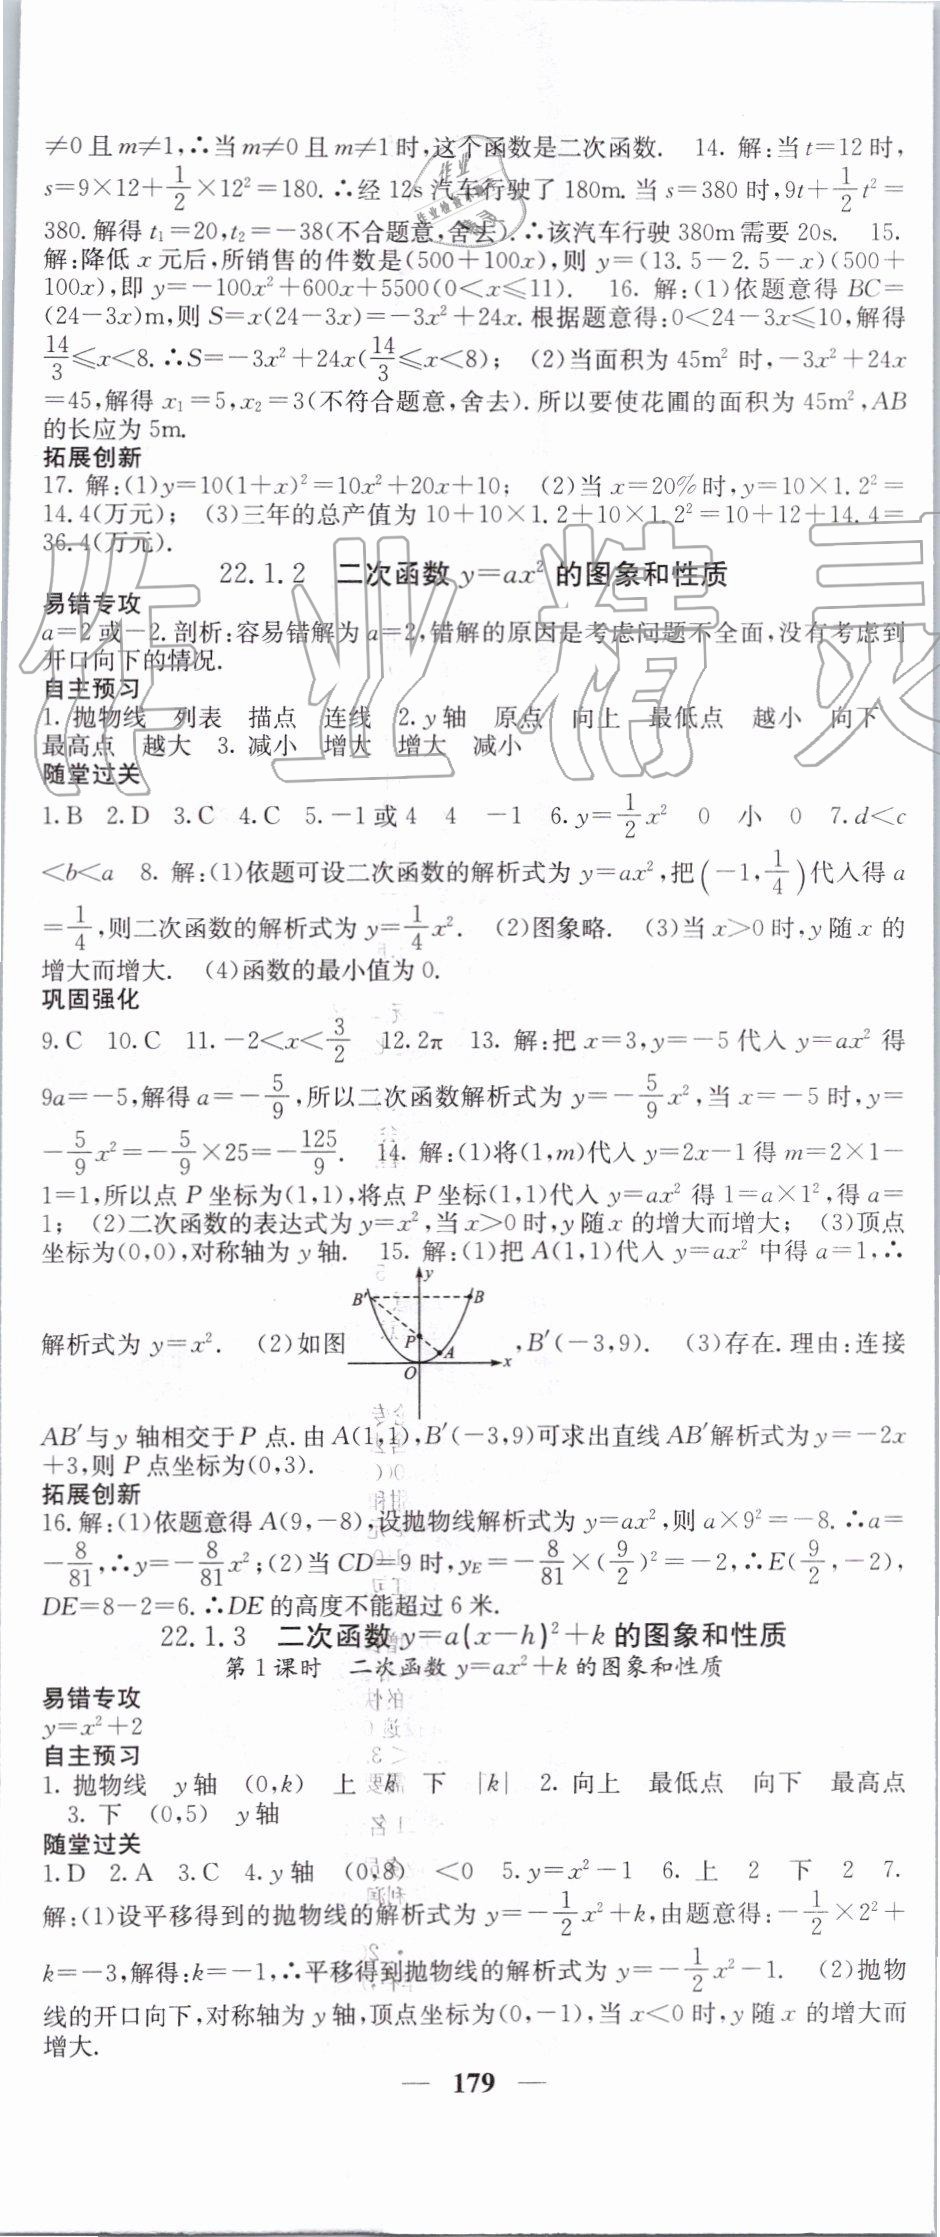 ≠0且m≠1,∴当m≠0且m≠1时,这个函数是二次函数. 14. 解:当t=12时,
s=9×12+1/2×12²=180.∴经12s汽车行驶了180m.当s=380时,9t+1/2t²=
380.解得t₁=20,t₂=-38(不合题意,舍去).∴该汽车行驶380m需要20s. 15.
解:降低x元后,所销售的件数是(500+100x),则y=(13.5-2.5-x)(500+
100x),即y=-100x²+600x+5500(0<x≤11). 16. 解:(1)依题意得BC=
(24-3x)m,则S=x(24-3x)=-3x²+24x.根据题意得:0<24-3x≤10,解得
14/3≤x<8.∴S=-3x²+24x(14/3≤x<8); (2)当面积为45m²时,-3x²+24x
=45,解得x₁=5,x₂=3(不符合题意,舍去).所以要使花圃的面积为45m²,AB
的长应为5m.
拓展创新
17. 解:(1)y=10(1+x)²=10x²+20x+10; (2)当x=20%时,y=10×1.2²=
14.4(万元); (3)三年的总产值为10+10×1.2+10×1.2²=10+12+14.4=
36.4(万元).
22.1.2 二次函数y=ax²的图象和性质
易错专攻
a=2或-2.剖析:容易错解为a=2,错解的原因是考虑问题不全面,没有考虑到
开口向下的情况.
自主预习
1. 抛物线 列表 描点 连线 2. y轴 原点 向上 最低点 越小 向下
最高点 越大 3. 减小 增大 增大 减小
随堂过关
1.B 2.D 3.C 4.C 5.-1或4 4 -1 6.y=1/2x² 0 小 0 7.d<c
<b<a 8. 解:(1)依题可设二次函数的解析式为y=ax²,把(-1,1/4)代入得a
=1/4,则二次函数的解析式为y=1/4x². (2)图象略. (3)当x>0时,y随x的
增大而增大. (4)函数的最小值为0.
巩固强化
9.C 10.C 11.-2<x<3/2 12.2π 13. 解:把x=3,y=-5代入y=ax²得
9a=-5,解得a=-5/9,所以二次函数解析式为y=-5/9x²,当x=-5时,y=
-5/9x²=-5/9×25=-125/9. 14. 解:(1)将(1,m)代入y=2x-1得m=2×1-
1=1,所以点P坐标为(1,1),将点P坐标(1,1)代入y=ax²得1=a×1²,得a=
1; (2)二次函数的表达式为y=x²,当x>0时,y随x的增大而增大; (3)顶点
坐标为(0,0),对称轴为y轴. 15. 解:(1)把A(1,1)代入y=ax²中得a=1,∴
y
B′ B
P
A
O x
解析式为y=x². (2)如图 ,B′(-3,9). (3)存在.理由:连接
AB′与y轴相交于P点.由A(1,1),B′(-3,9)可求出直线AB′解析式为y=-2x
+3,则P点坐标为(0,3).
拓展创新
16.解:(1)依题意得A(9,-8),设抛物线解析式为y=ax²,则a×9²=-8.∴a=
-8/81,∴y=-8/81x²;(2)当CD=9时,y_E=-8/81×(9/2)²=-2,∴E(9/2,-2),
DE=8-2=6.∴DE的高度不能超过6米.
22.1.3 二次函数y=a(x-h)²+k的图象和性质
第1课时 二次函数y=ax²+k的图象和性质
易错专攻
y=x²+2
自主预习
1. 抛物线 y轴 (0,k) 上 k 下 |k| 2. 向上 最低点 向下 最高点
3. 下 (0,5) y轴
随堂过关
1.D 2.A 3.C 4.y轴 (0,8) <0 5.y=x²-1 6. 上 2 下 2 7.
解:(1)设平移得到的抛物线的解析式为y=-1/2x²+k,由题意得:-1/2×2²+
k=-3,解得:k=-1,∴平移得到抛物线的解析式为y=-1/2x²-1. (2)抛物
线的开口向下,对称轴为y轴,顶点坐标为(0,-1),当x<0时,y随x的增大而
增大.
— 179 —
作业精灵